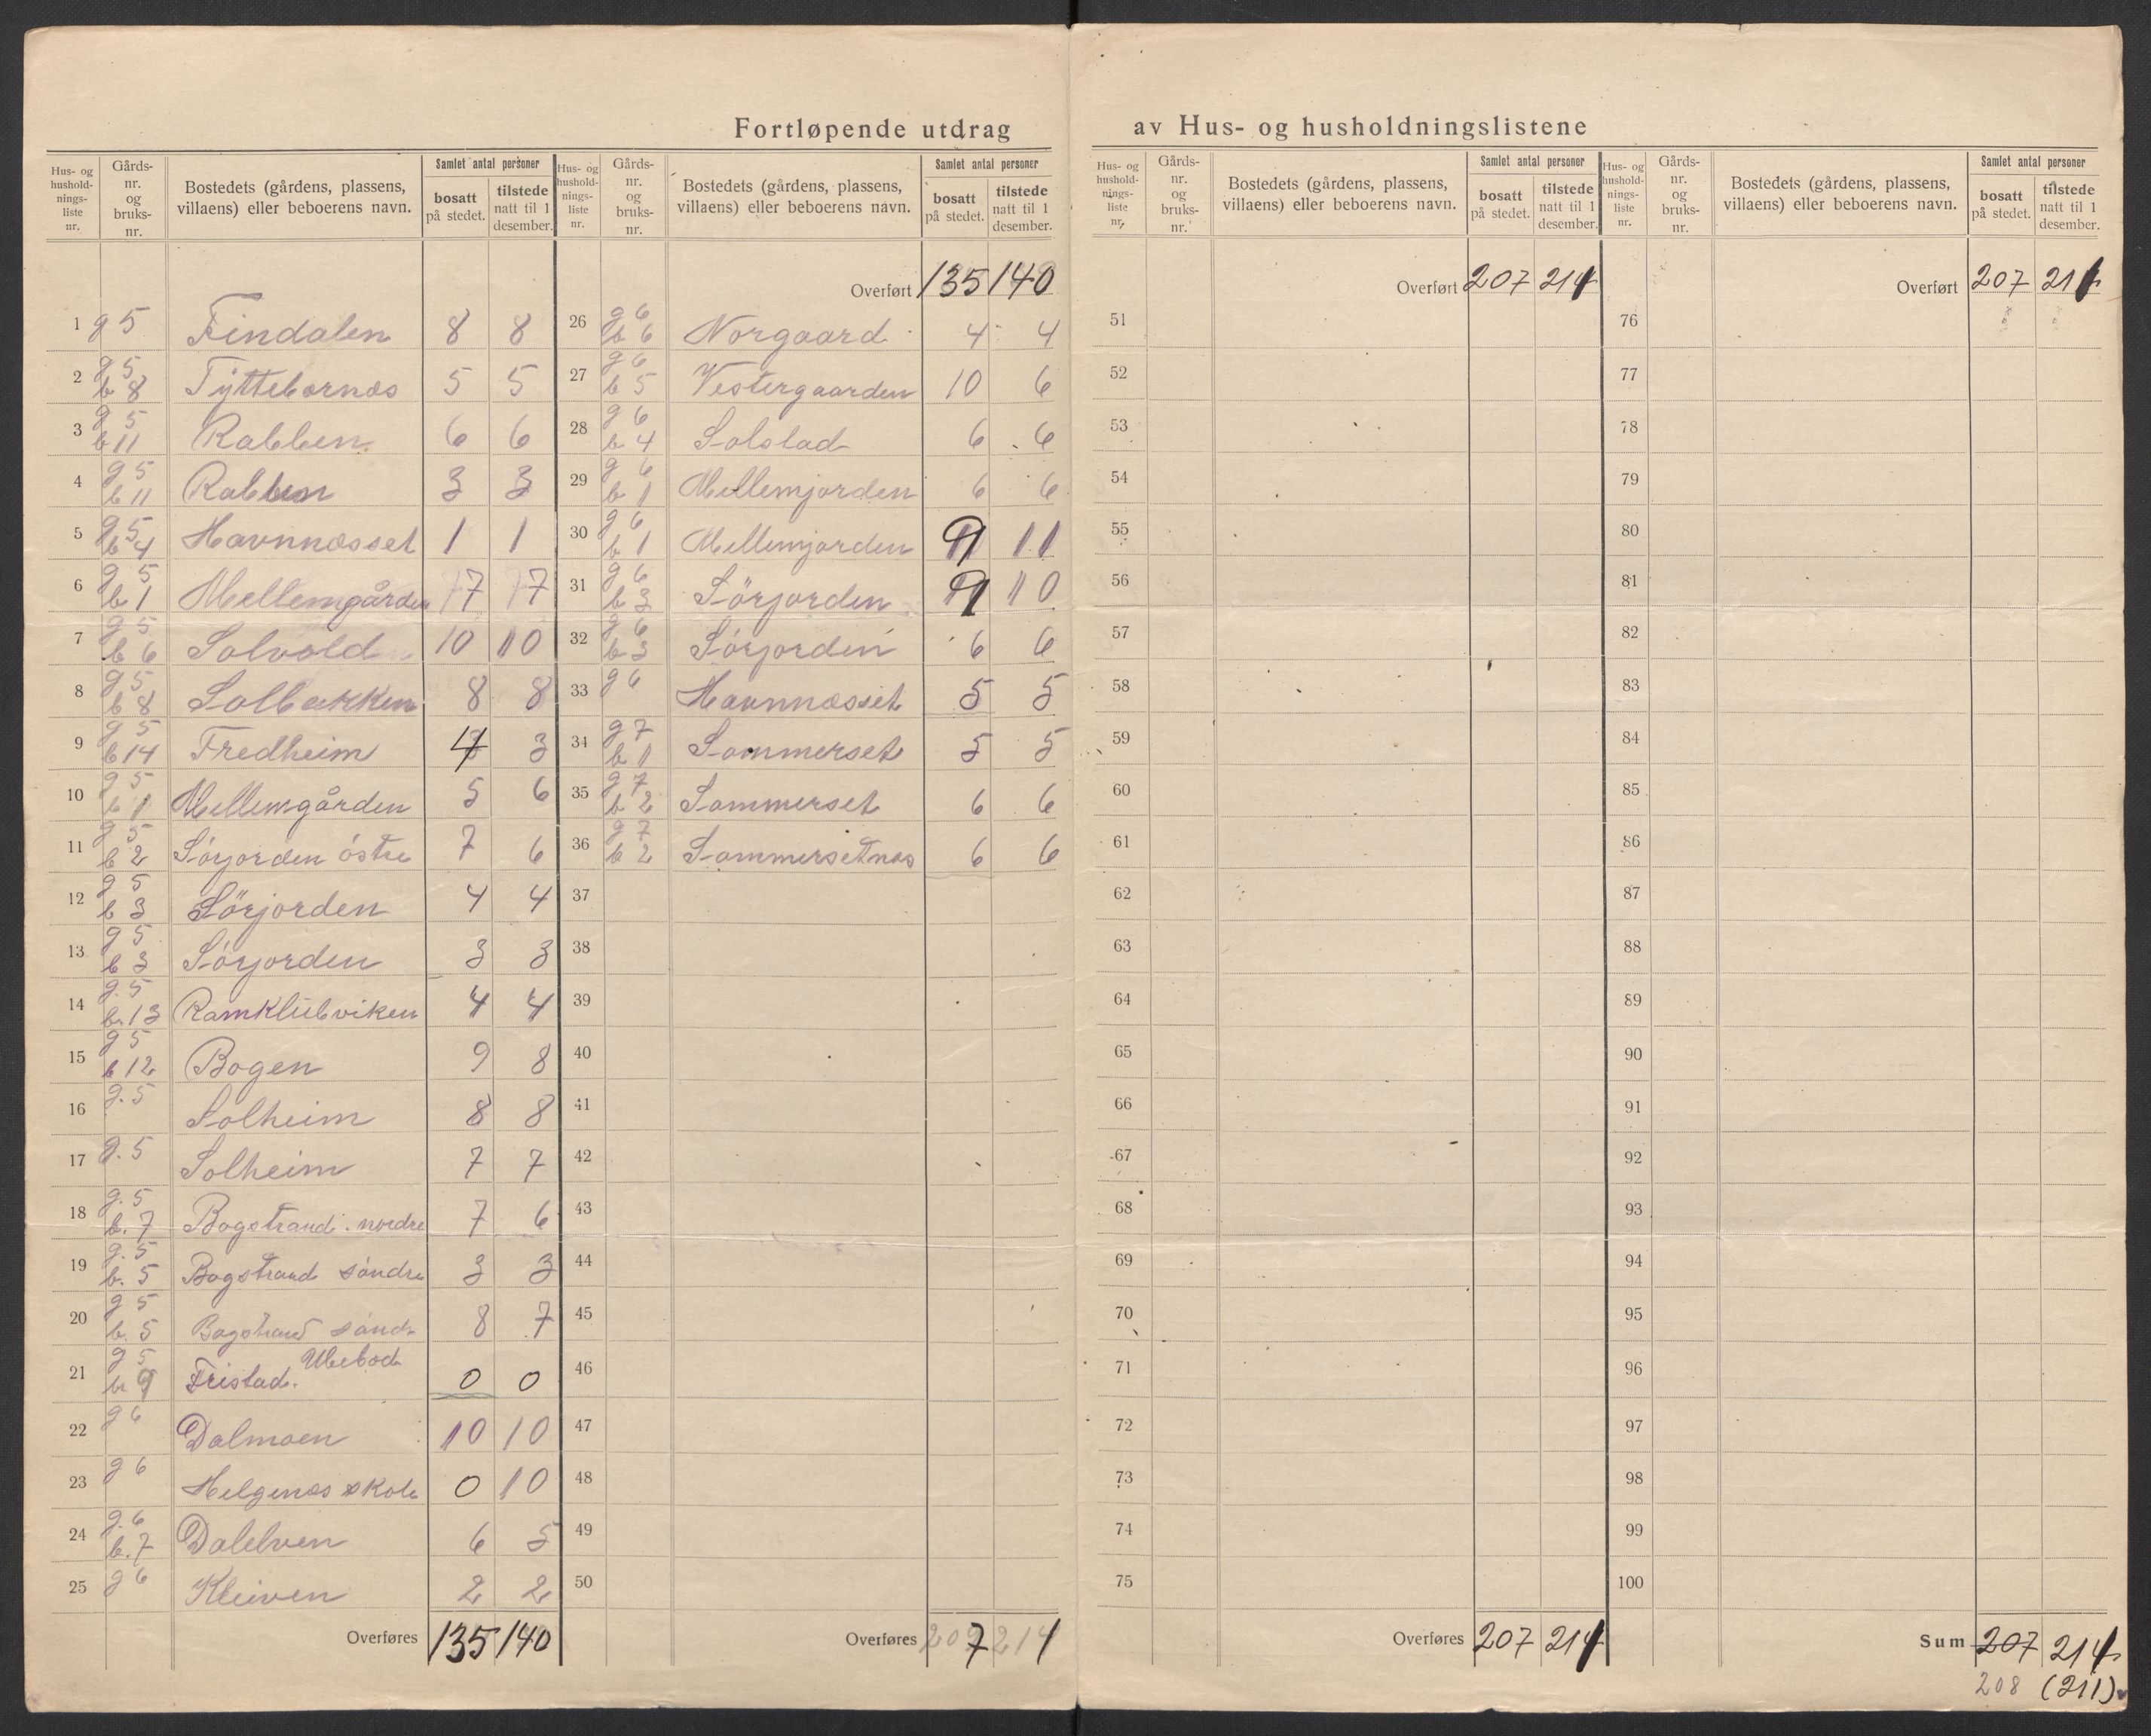 Fortløpende utdrag av Hus- og husholdningslistene
Hus- og husholdnings-liste nr. | Gårds-nr. og bruks-nr. | Bostedets (gårdens, plassens, villaens) eller beboerens navn. | Samlet antal personer | bosatt på stedet. | tilstede natt til 1 desember.
1 g 5 Findalen 8 8
2 g 5 b 8 Tyttebærnæs 5 5
3 g 5 b 11 Rabben 6 6
4 g 5 b 11 Rabben 3 3
5 g 5 b 4 Havnnæsset 1 1
6 g 5 b 1 Mellemgården 17 17
7 g 5 b 6 Solvold 10 10
8 g 5 b 8 Solbakken 8 8
9 g 5 b 14 Fredheim 4 3
10 g 5 b 1 Mellemgården 5 6
11 g 5 b 2 Sörjorden östre 7 6
12 g 5 b 3 Sörjorden 4 4
13 g 5 b 3 Sörjorden 3 3
14 g. 5 b. 13 Ramklubviken 4 4
15 g 5 b 12 Bogen 9 8
16 g. 5 Solheim 8 8
17 g. 5 Solheim 7 7
18 g. 5 b. 7 Bogstrand nordre 7 6
19 g. 5 b. 5 Bogstrand söndre 3 3
20 g 5 b. 5 Bogstrand söndr 8 7
21 g 5 b. 9 Fristad. Ubebod 0 0
22 g 6 Dalmoen 10 10
23 g 6 Helgenæs skole 0 10
24 g. 6 b. 7 Dalelven 6 5
25 g 6 Kleiven 2 2
Overføres 135 140
Hus- og husholdnings-liste nr. | Gårds-nr. og bruks-nr. | Bostedets (gårdens, plassens, villaens) eller beboerens navn. | Samlet antal personer | bosatt på stedet. | tilstede natt til 1 desember.
Overført 135 140
26 g 6 b 6 Norgaard 4 4
27 g 6 b 5 Vestergaarden 10 6
28 g 6 b 4 Solstad 6 6
29 g 6 b 1 Mellemjorden 6 6
30 g 6 b 1 Mellemjorden 9 11
31 g 6 b 3 Sörjorden 9 10
32 g 6 b 3 Sörjorden 6 6
33 g 6 Havnnæsset 5 5
34 g 7 b 1 Sommerset 5 5
35 g 7 b 2 Sommerset 6 6
36 g 7 b 2 Sommersetnæs 6 6
37
38
39
40
41
42
43
44
45
46
47
48
49
50
Overføres 207 211
Hus- og husholdnings-liste nr. | Gårds-nr. og bruks-nr. | Bostedets (gårdens, plassens, villaens) eller beboerens navn. | Samlet antal personer | bosatt på stedet. | tilstede natt til 1 desember.
Overført 207 211
51
52
53
54
55
56
57
58
59
60
61
62
63
64
65
66
67
68
69
70
71
72
73
74
75
Overføres 207 211
Hus- og husholdnings-liste nr. | Gårds-nr. og bruks-nr. | Bostedets (gårdens, plassens, villaens) eller beboerens navn. | Samlet antal personer | bosatt på stedet. | tilstede natt til 1 desember.
Overført 207 211
76
77
78
79
80
81
82
83
84
85
86
87
88
89
90
91
92
93
94
95
96
97
98
99
100
Sum 207 211
208 (211)